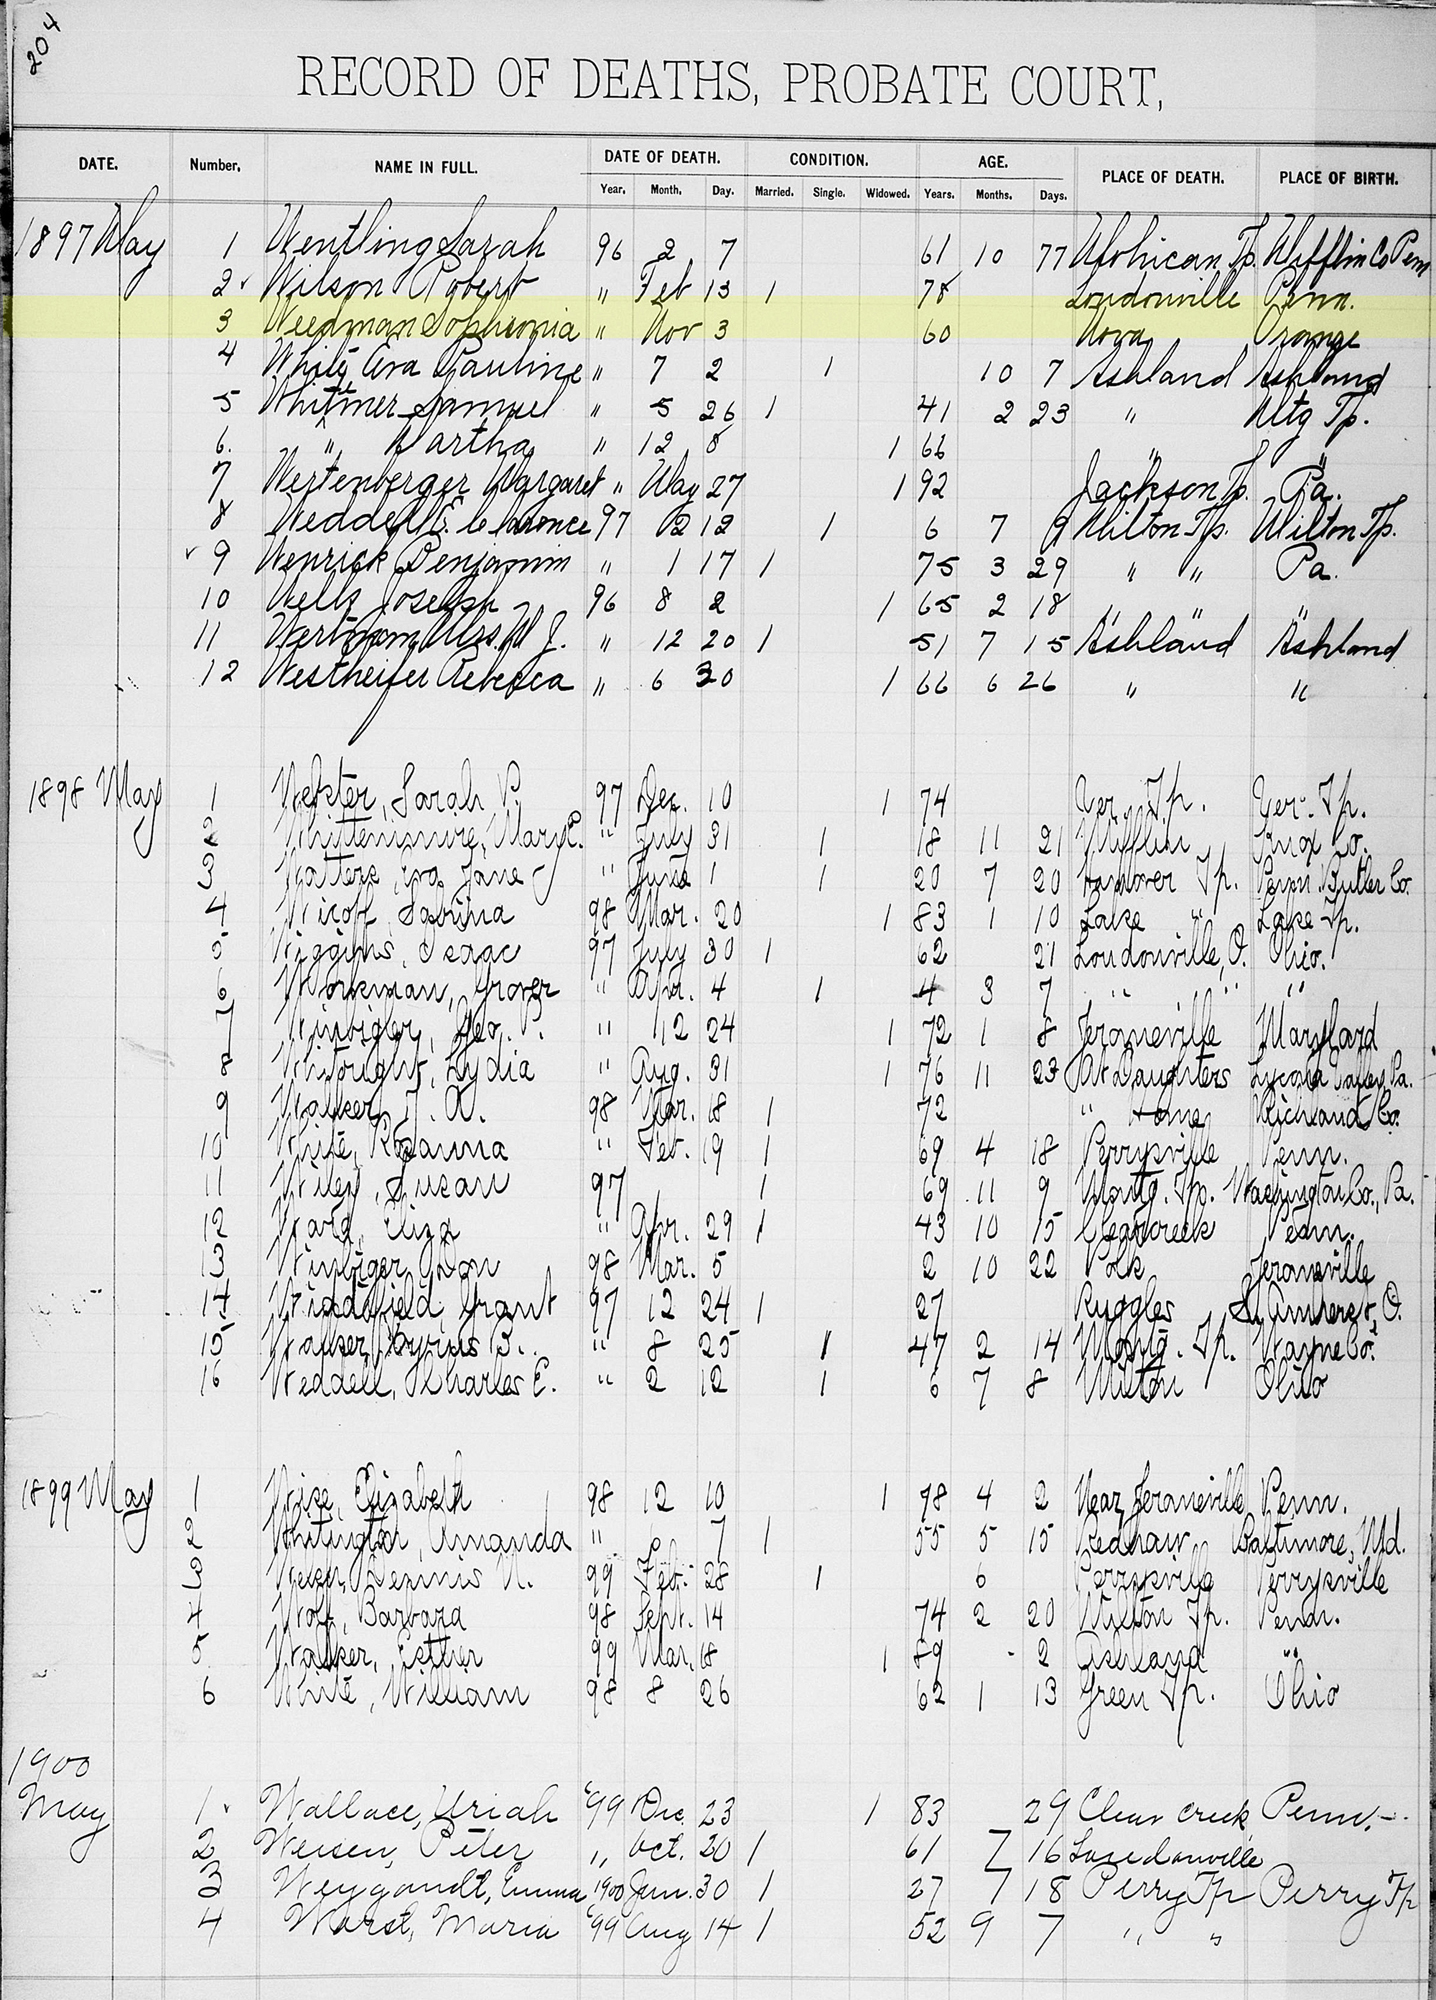 204
RECORD OF DEATHS, PROBATE COURT,
DATE. Number. NAME IN FULL. DATE OF DEATH. CONDITION. AGE. PLACE OF DEATH. PLACE OF BIRTH.
Year. Month. Day. Married. Single. Widowed. Years. Months. Days.
1897 May 1 Wentling Sarah 96 2 7 61 10 77 Mohican Tp. Mifflin Co Penn
2 Wilson Robert " Feb 13 1 78 Loudonville Penn.
3 Weedman Sophronia " Nov 3 60 Nova Orange
4 White Eva Pauline " 7 2 1 10 7 Ashland Ashland
5 Whitmer Samuel " 5 26 1 41 2 23 " Mtg Tp.
6. " Martha " 12 8 1 66 " "
7 Wertenberger Margaret " May 27 1 92 Jackson Tp. Pa.
8 Weddell E. Clarence 97 02 12 1 6 7 9 Milton Tp. Milton Tp.
9 Wenrick Benjamin " 1 17 1 75 3 29 " " Pa.
10 Wells Joseph 96 8 2 1 65 2 18 " " "
11 Mrs. M J. " 12 20 1 51 7 15 Ashland Ashland
12 Westheifer Rebecca " 6 30 1 66 6 26 " "
1898 May 1 Webster, Sarah P. 97 Dec. 10 1 74 Ver. Tp. Ver. Tp.
2 Whittemmire, Mary C. " July 31 1 18 11 21 Mifflin Knox Co.
3 Watters, Eva Jane " June 1 1 20 7 20 Hanover Tp. Penn. Butler Co.
4 Wicoff, Sabrina 98 Mar. 20 1 83 1 10 Lake " Lake Tp.
5 Wiggins, Isaac 97 July 30 1 62 21 Loudonville, O. Ohio.
6 Workman, Grover " Apr. 4 1 4 3 7 " " "
7 Winbigler, Geo. P. " 12 24 1 72 1 8 Jeromeville Maryland
8 Whitright, Lydia " Aug. 31 1 76 11 23 At Daughters Valley Pa.
9 Walker, J. A. 98 Mar. 18 1 72 " Home Richland Co.
10 White, Rosanna " Feb. 19 1 69 4 18 Perrysville Penn.
11 Wiley, Susan 97 1 69 11 9 Montg. Tp. Washington Co., Pa.
12 Ward, Eliza " Apr. 29 1 43 10 15 Clearcreek Penn.
13 Winbiger, Don 98 Mar. 5 2 10 22 Polk Jeromeville
14 Grant 97 12 24 1 27 Ruggles S. Amherst, O.
15 Walker, Cyrius B. " 8 25 1 47 2 14 Montg. Tp. Wayne Co.
16 Weddell, Charles E. " 2 12 1 6 7 8 Milton Ohio
1899 May 1 Wise, Elizabeth 98 12 10 1 78 4 2 Near Jeromeville Penn.
2 Whitington, Amanda " 6 7 1 55 5 15 Redhaw Baltimore, Md.
3 Dennis N. 99 Feb. 28 1 6 Perrysville Perrysville
4 Wolf, Barbara 98 Sept. 14 74 2 20 Milton Tp. Penn.
5 Walker, Esther 99 Mar. 18 1 89 - 2 Ashland "
6 White, William 98 8 26 62 1 13 Green Tp. Ohio
1900
May 1 Wallace, Uriah '99 Dec. 23 1 83 29 Clear Creek Penn. -
2 Weisen, Peter " Oct. 20 1 61 7 16 Loudonville
3 Weygandt, Emma 1900 Jan. 30 1 27 7 18 Perry Tp Perry Tp
4 Warst, Maria '99 Aug 14 1 52 9 7 " "